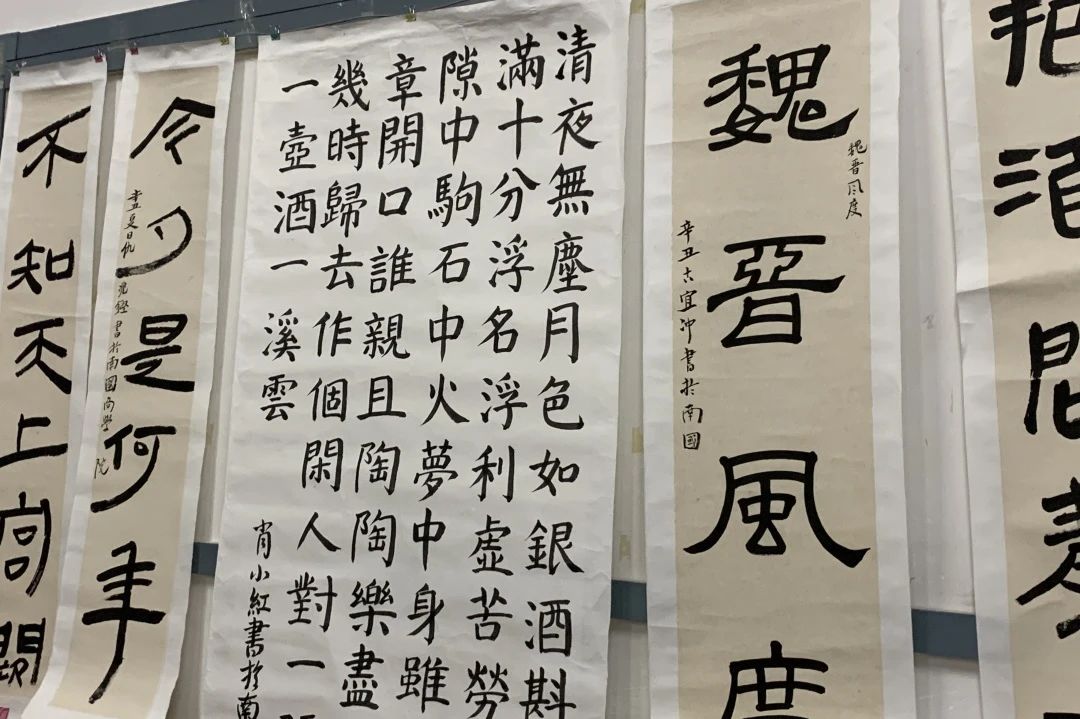 把酒問青
魏晉風度
魏晋风度
辛丑古宜冲書於南國
清夜無塵月色如銀酒斟
滿十分浮名浮利虛苦勞
隙中駒石中火夢中身雖
章開口誰親且陶陶樂盡
幾時歸去作個閑人對一
一壺酒一溪雲
肖小紅書於南
今夕是何年
辛丑夏日仇
書於南國向學院
不知天上宮闕